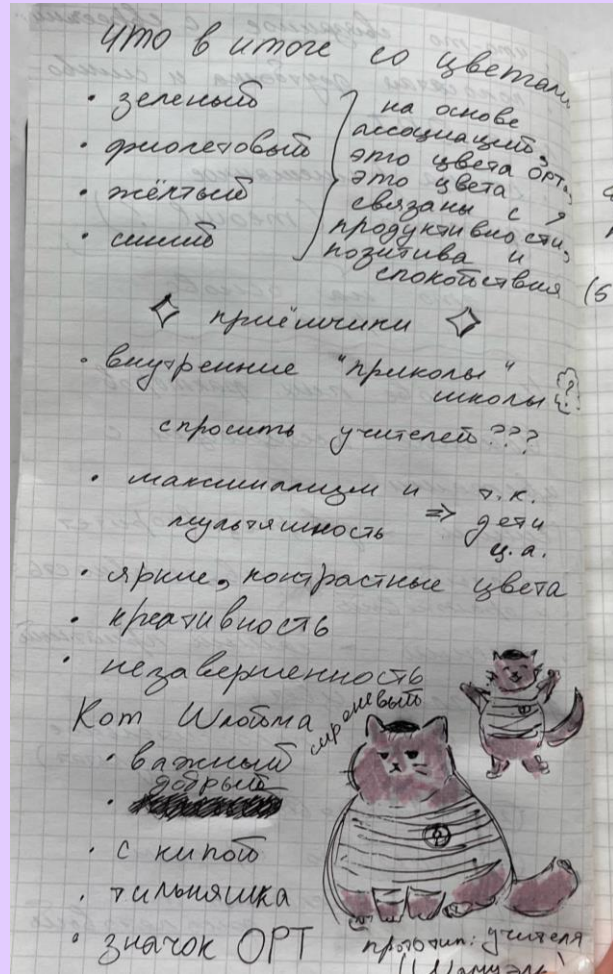 что в итоге со цветами
• зеленый
• фиолетовый
• жёлтый
• синий
на основе
ассоциаций,
это цвета ОРТа,
это цвета
связаны с
продуктивности,
позитива и
спокойствия
приёмчики
• внутренние "приколы"
школы ?
спросить учителей???
• максимализм и
мультяшность
=> т.к.
дети
ц.а.
• яркие, контрастные цвета
• креативность
• незавершенность
Кот Шлойма
сиреневый
• важный
• добрый
• с кипой
• тильняшка
• значок ОРТ
прототип: учителя